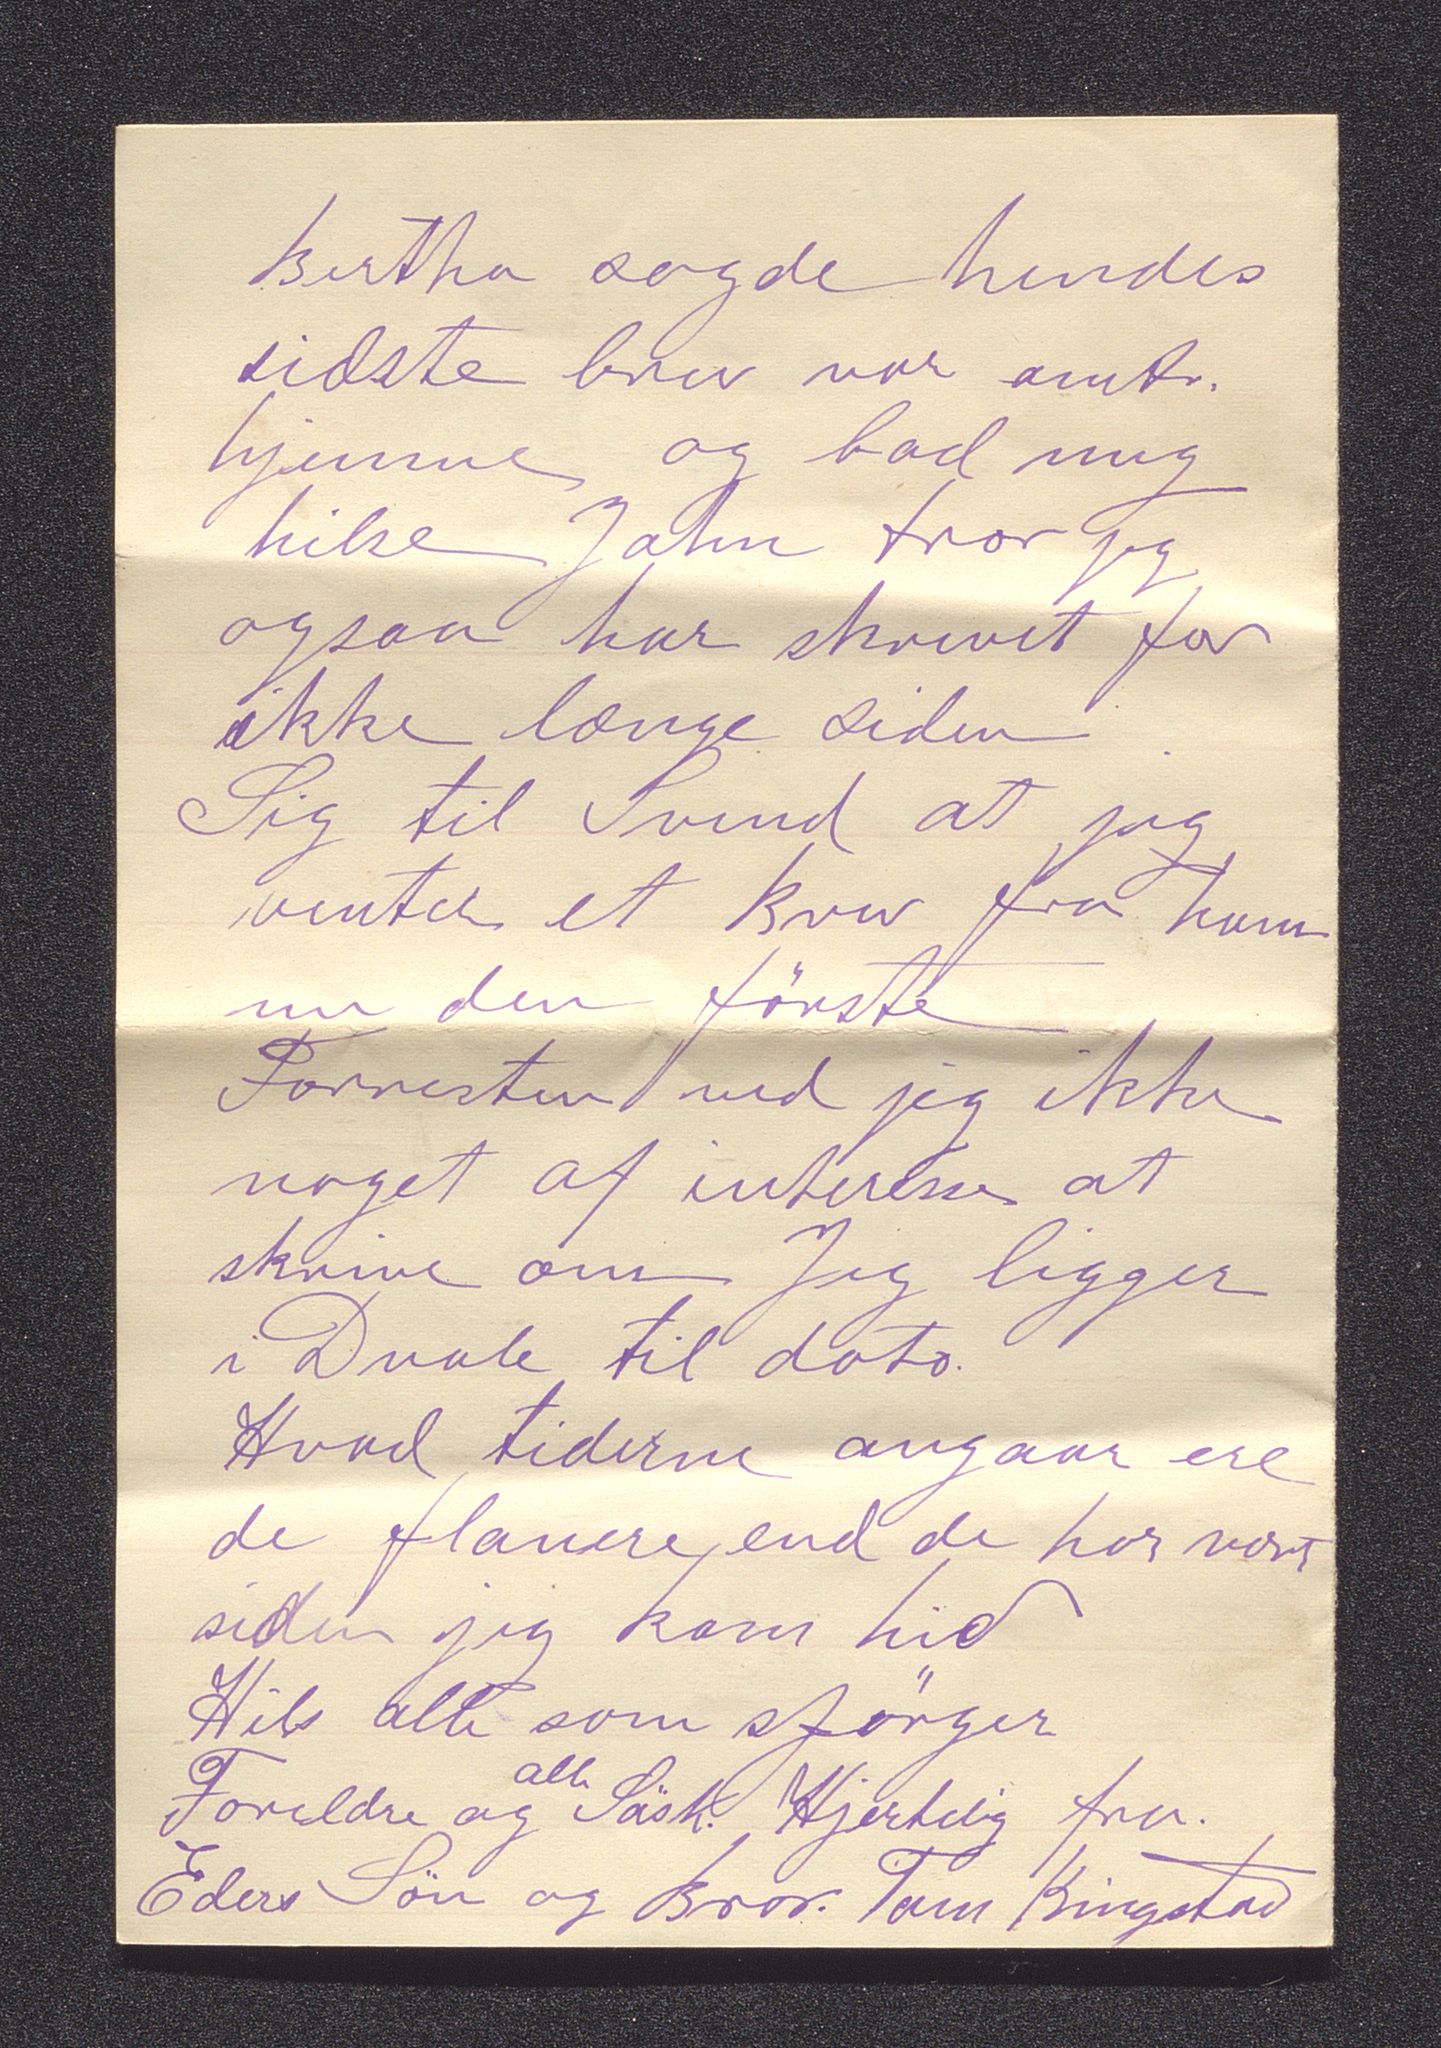 Bertha sagde hendes
sidste brev var
hjemme og bad mig
hilse John tror jeg
ogsaa har skrevet for
ikke længe siden
Sig til Svend at jeg
venter et Brev fra ham
nu den förste
Forresten ved jeg ikke
noget af interesse at
skrive om Jeg ligger
i Dvale til dato.
Hvad tiderne angaar ere
de flauere end de har vært
siden jeg kom hid
Hils alle som spörger
Foreldre og alle Sösk. Hjertelig fra.
Eders Sön og Bror. Tom Ringstad